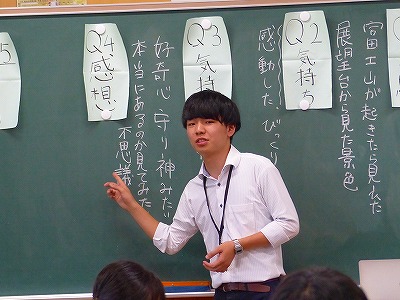 富士山が起きたら見えた
展望台から見た景色
Q2 気持ち
感動した、びっくり
Q3 気持
好奇心 守り神みたい
本当にあるのか見てみた
不思議
Q4 感想
5